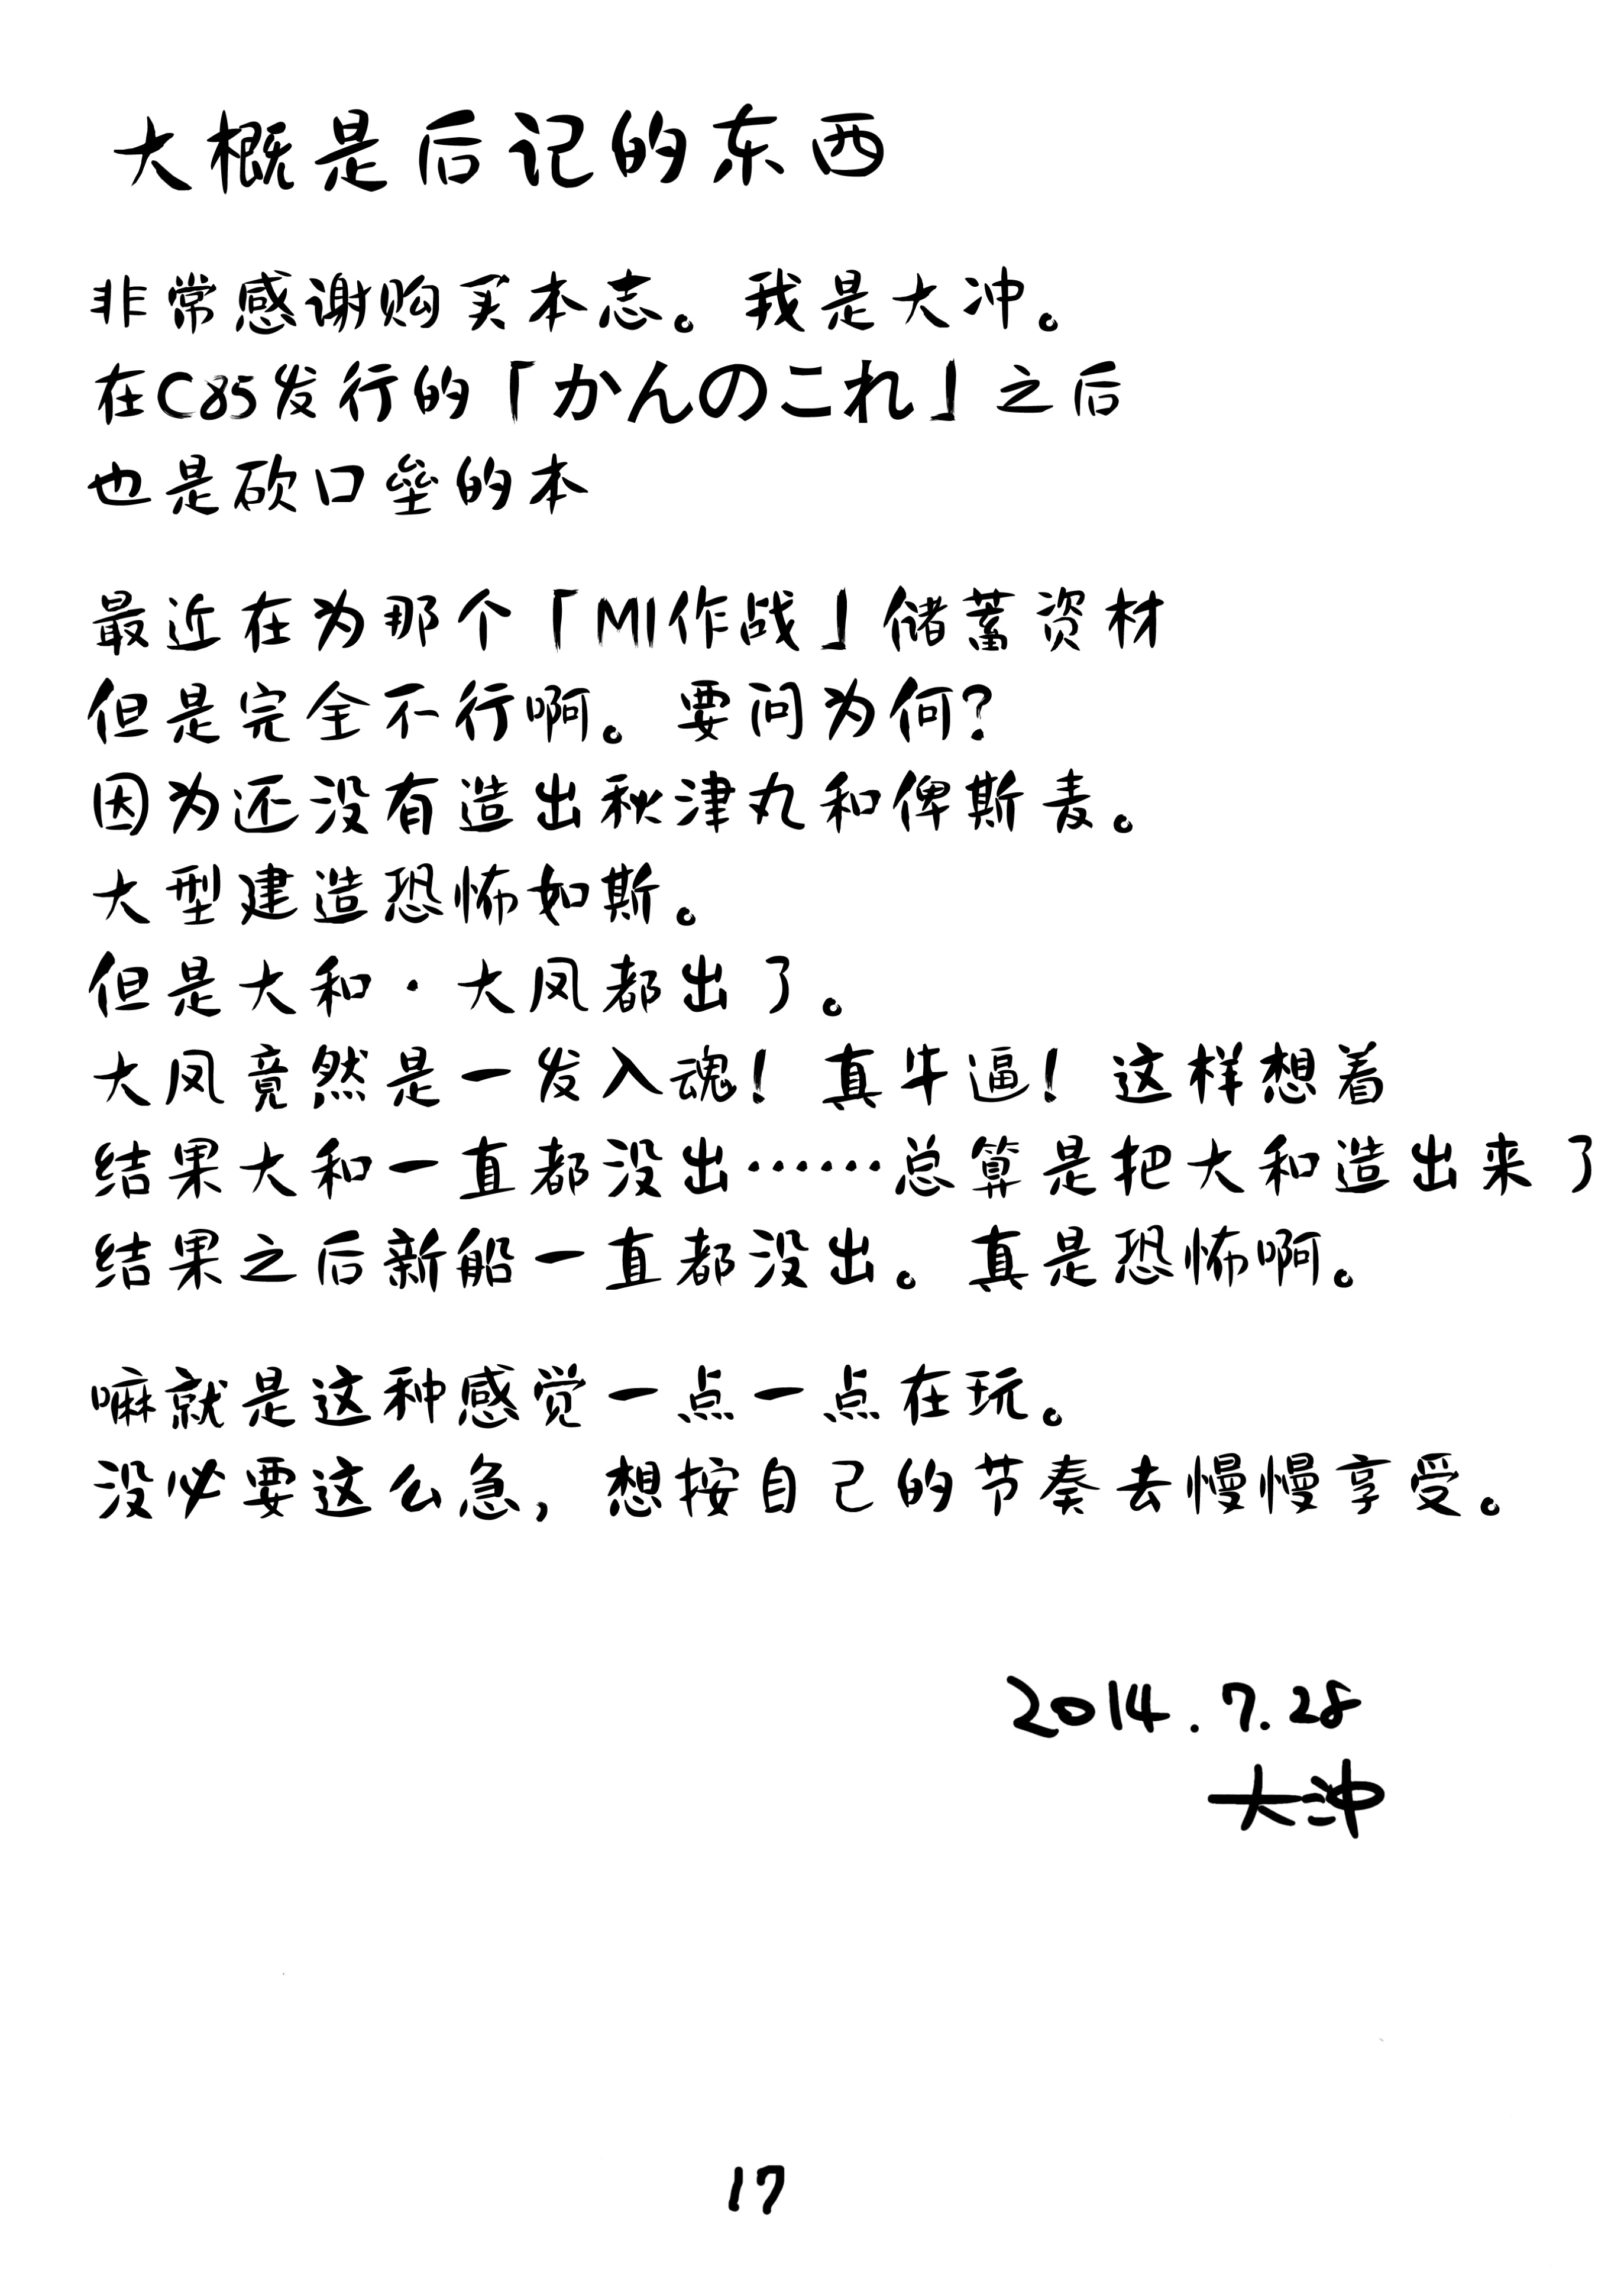 大概是后记的东西
非常感谢购买本志。我是大冲。
在C85发行的「かんのこれ」之后
也是砍口垒的本
最近在为那个「MI作战」储蓄资材
但是完全不行啊。要问为何?
因为还没有造出秋津丸和俾斯麦。
大型建造恐怖如斯。
但是大和·大凤都出了。
大凤竟然是一发入魂!真牛逼!这样想着
结果大和一直都没出……总算是把大和造出来了
结果之后新船一直都没出。真是恐怖啊。
嘛就是这种感觉一点一点在玩。
没必要这么急,想按自己的节奏去慢慢享受。
2014.7.28
大沖
17